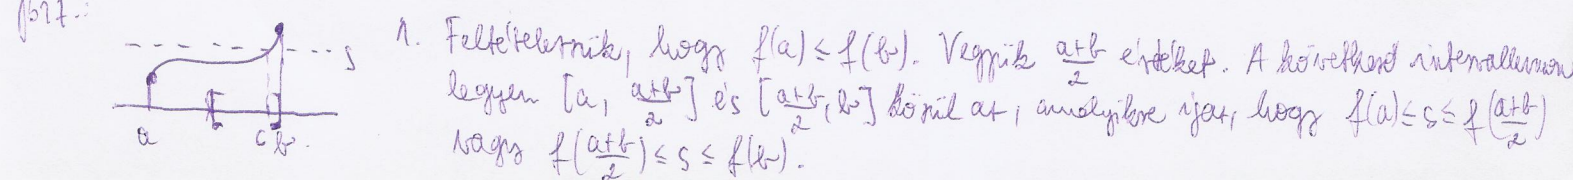 biz.:
s
a c b.
1. Feltételezzük, hogy f(a) ≤ f(b). Vegyük (a+b)/2 értéket. A következő intervallumon
legyen [a, (a+b)/2] és [(a+b)/2, b] közül az, amelyikre igaz, hogy f(a) ≤ s ≤ f((a+b)/2)
vagy f((a+b)/2) ≤ s ≤ f(b).